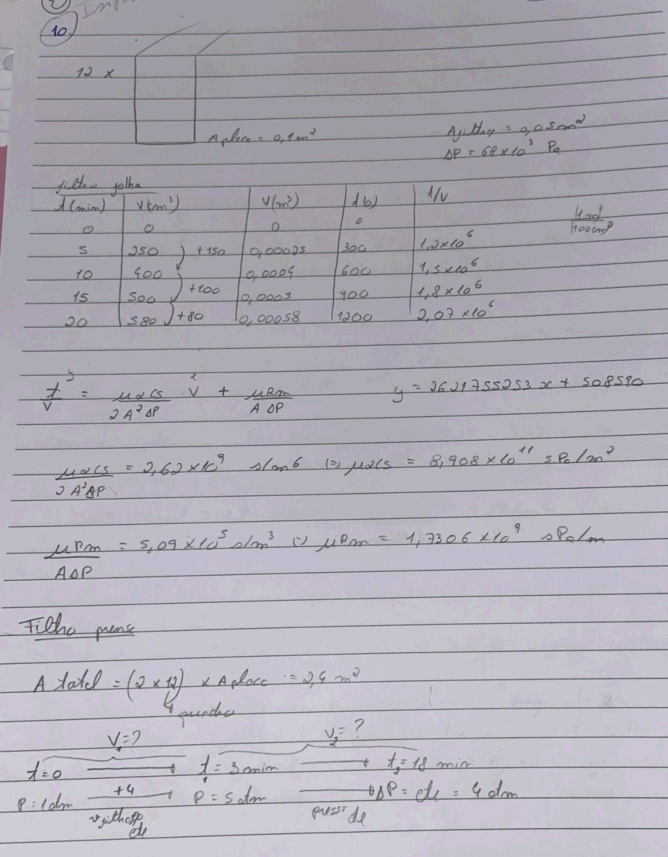 10.
12 x
A placa = 0,1 m²
A filtrap = 0,05 m²
ΔP = 68x10³ Pa
filtro folha
t(min) V(cm³) V(m³) t(s) t/V
0 0 0 0
5 250 0,00025 300 1,2x10⁶
+150
10 400 0,0004 600 1,5x10⁶
+100
15 500 0,0005 900 1,8x10⁶
+80
20 580 0,00058 1200 2,07x10⁶
t/V = μαCs/2A²ΔP · V + μRm/AΔP y = 2621755253x + 508590
μαCs/2A²ΔP = 2,62x10⁹ s/m6 (=) μαCs = 8,908x10¹¹ sPa/m²
μRm/AΔP = 5,09x10⁵ s/m³ (=) μRm = 1,7306x10⁹ sPa/m
Filtro prensa
A total = (2 x 12) x A placa = 2,4 m²
quadros
V₁=? V₂=?
t=0 t₁=3min t₂=18 min
P=1atm +4 P=5atm ΔP=cte=4atm
cte press de